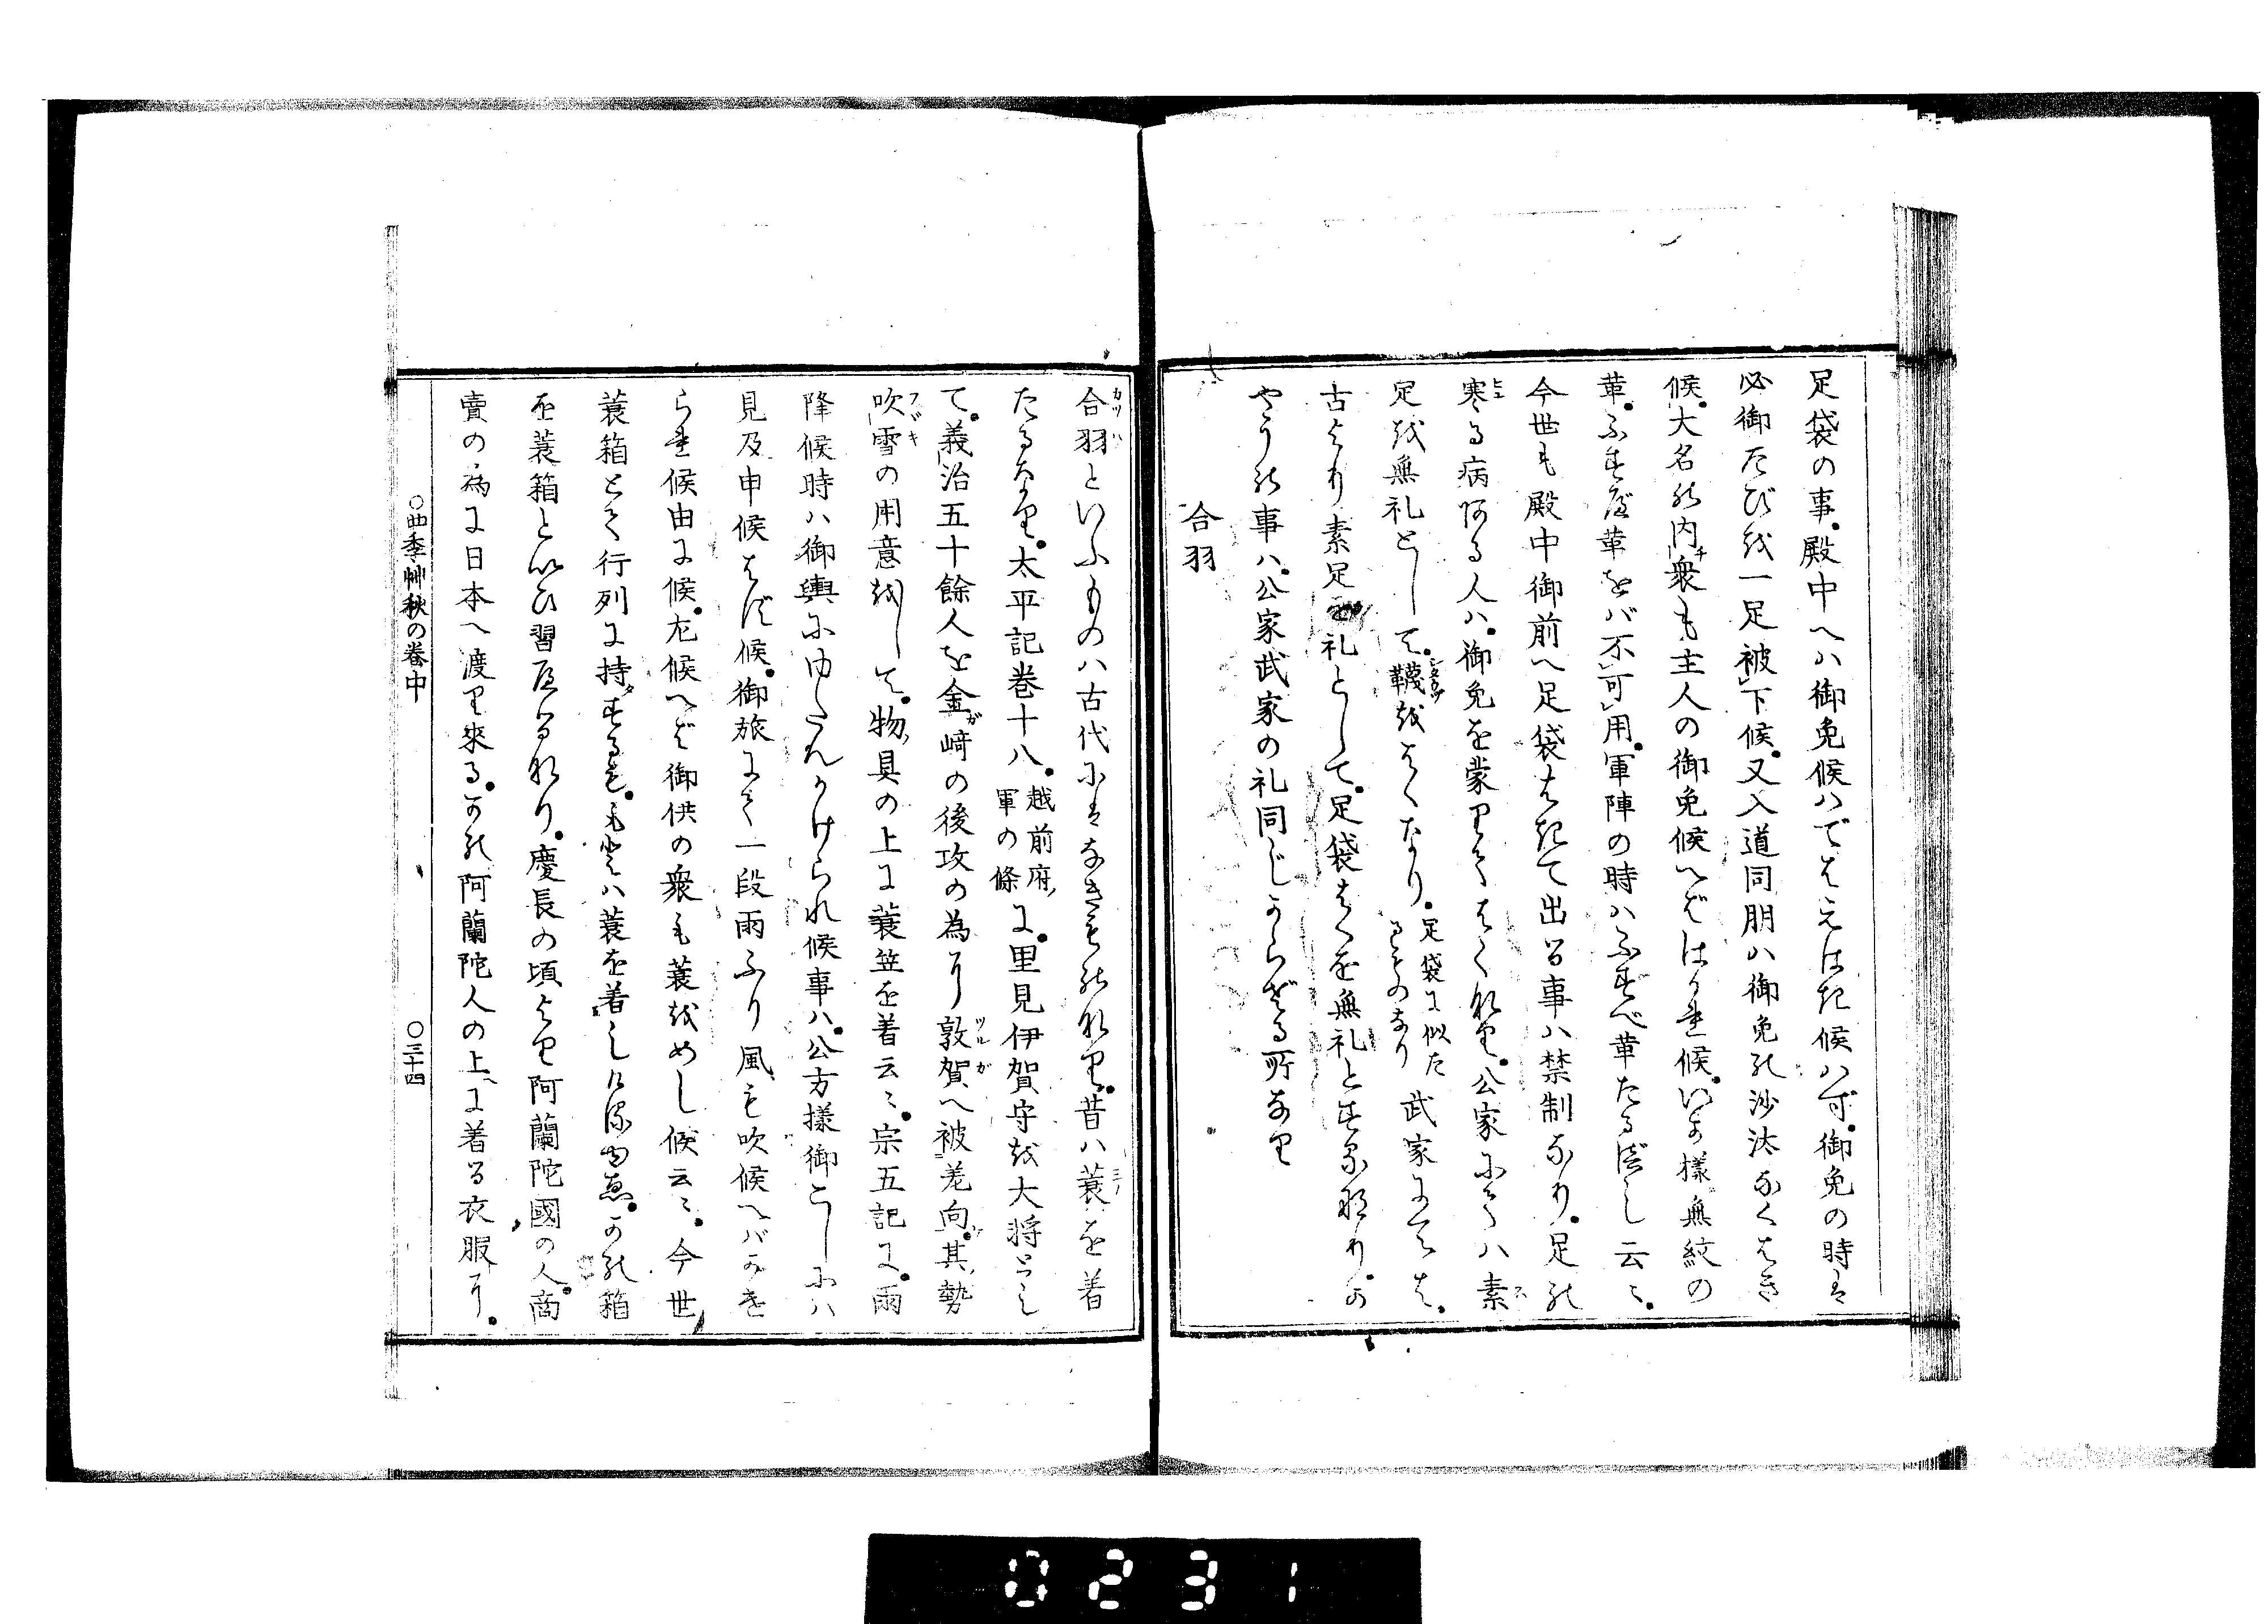 足袋の事。殿中へハ御免候ハでハえはき候ハず。御免の時は
必御たびを一足被下候。又入道同朋ハ御免の沙汰なくはき
候。大名の内衆も主人の御免候へばはかれ候。いか様無紋の
革。ふすべ革をバ不可用。軍陣の時ハふすべ革たるべし云〻。
今世も殿中御前へ足袋はきて出る事ハ禁制なり。足の
寒る病ある人ハ。御免を蒙りてはくなり。公家にてハ素
足を無礼として。韈をはくなり。足袋に似たるものなり 武家にてハ。
古より素足を礼として。足袋はくを無礼とするなり。か
やうの事ハ。公家武家の礼同じからざる所なり
合羽
合羽といふものハ古代にはなきものなり。昔ハ蓑を着
たるなり。太平記巻十八。越前府軍の條に。里見伊賀守を大将とし
て。義治五十餘人を金崎の後攻の為に敦賀へ被差向。其勢
吹雪の用意をして。物具の上に蓑笠を着云〻。宗五記に。雨
降候時ハ御輿にゆたんかけられ候事ハ。公方様御こしにハ
見及申候はず候。御旅にて一段雨ふり風も吹候へバかけ
られ候由に候。左候へば御供の衆も蓑をめし候云〻。今世
蓑箱とて行列に持するも。もとハ蓑を着しける故。かの箱
を蓑箱といひ習ハしたるなり。慶長の頃より阿蘭陀國の人。商
賣の為に日本へ渡り來る。かの阿蘭陀人の上に着る衣服に。
○四季艸秋の巻中
○三十四
0231